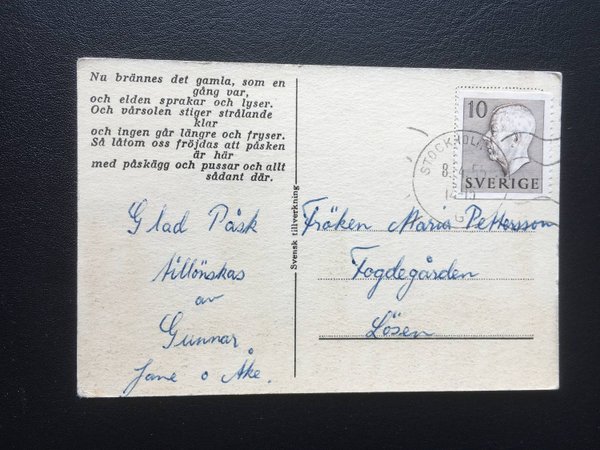 Nu brännes det gamla, som en
gång var,
och elden sprakar och lyser.
Och vårsolen stiger strålande
klar
och ingen går längre och fryser.
Så låtom oss fröjdas att påsken
är här
med påskägg och pussar och allt
sådant där.
Glad Påsk
tillönskas
av
Gunnar
Jane o Åke.
Svensk tillverkning
10
SVERIGE
STOCKHOLM
Fröken Maria Pettersson
Fogdegården
Lösen